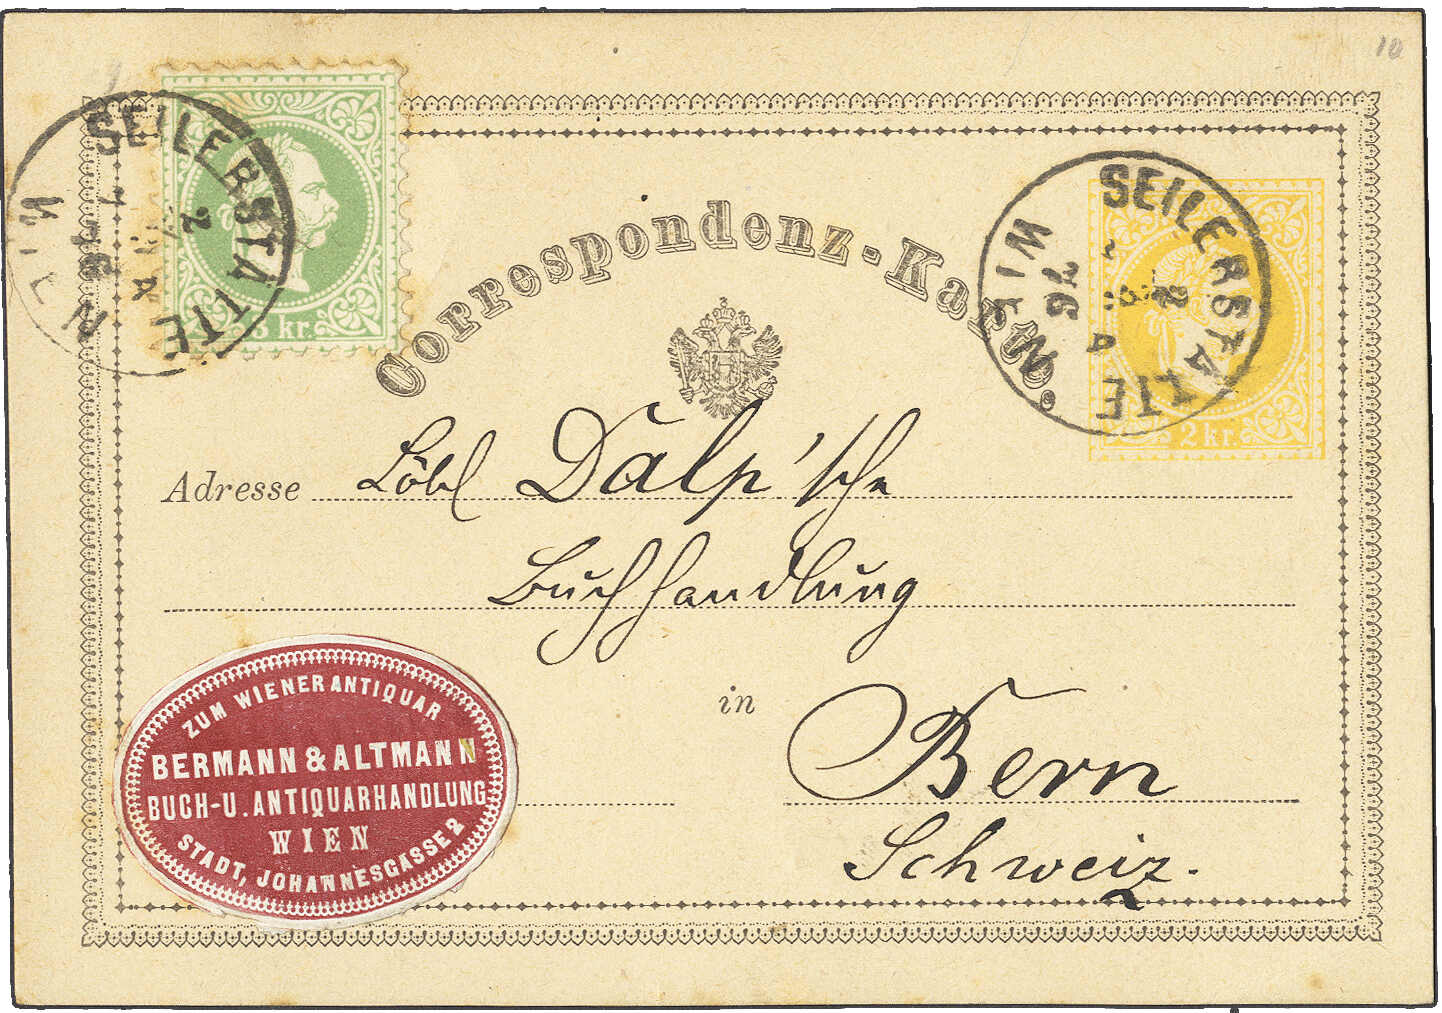 10
SEILERSTÄTTE WIEN
3 kr.
Correspondenz-Karte.
SEILERSTÄTTE WIEN
76
2 kr.
Adresse Löbl Dalp'sche
Buchhandlung
in Bern
Schweiz.
ZUM WIENER ANTIQUAR
BERMANN & ALTMANN
BUCH- U. ANTIQUARHANDLUNG
WIEN
STADT, JOHANNESGASSE 2